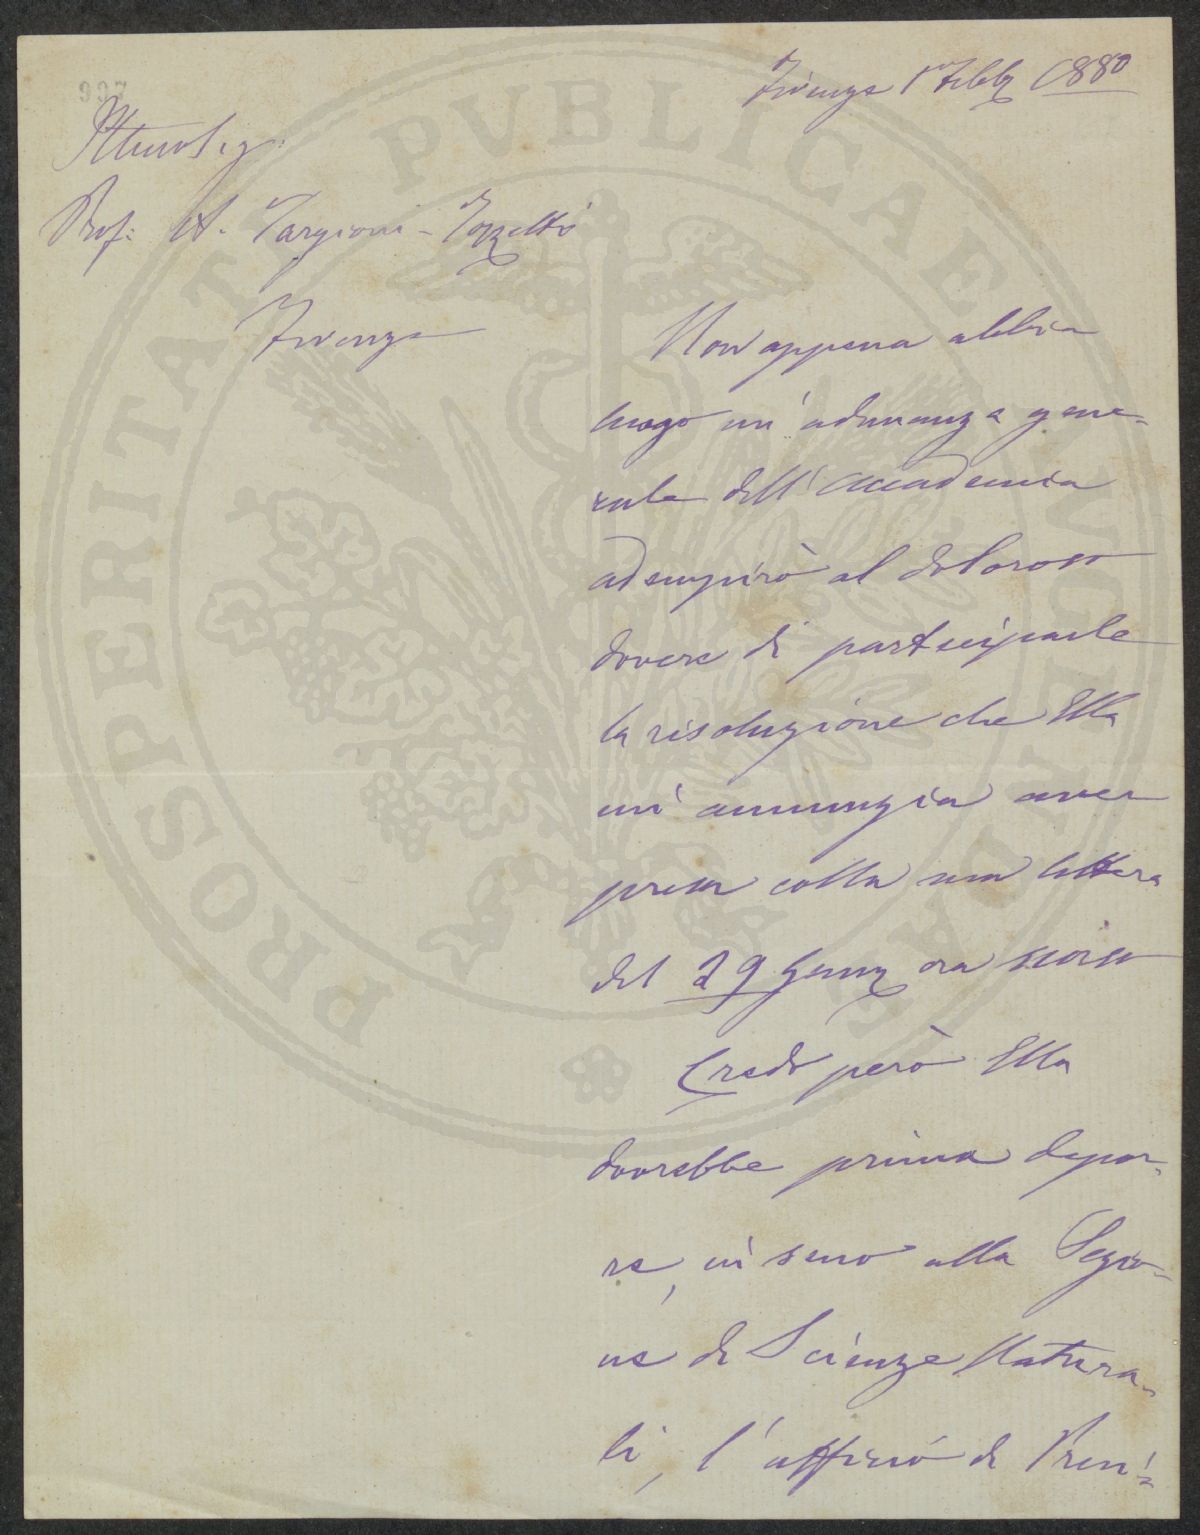 Firenze 1º Febb 1880
Illmo Sig:
Prof: A. Targioni-Tozzetti
Firenze
Non appena abbia
luogo un'adunanza gene-
rale dell'Accademia
adempirò al doloroso
dovere di parteciparle
la risoluzione che Ella
mi annunzia aver
presa colla sua lettera
del 29 Genn ora scorso
Credo però Ella
dovrebbe prima depor-
re, in seno alla Sezio-
ne di Scienze Natura-
li, l'ufficio di Presi-
PROSPERITATI PVBLICAE AVGENDAE